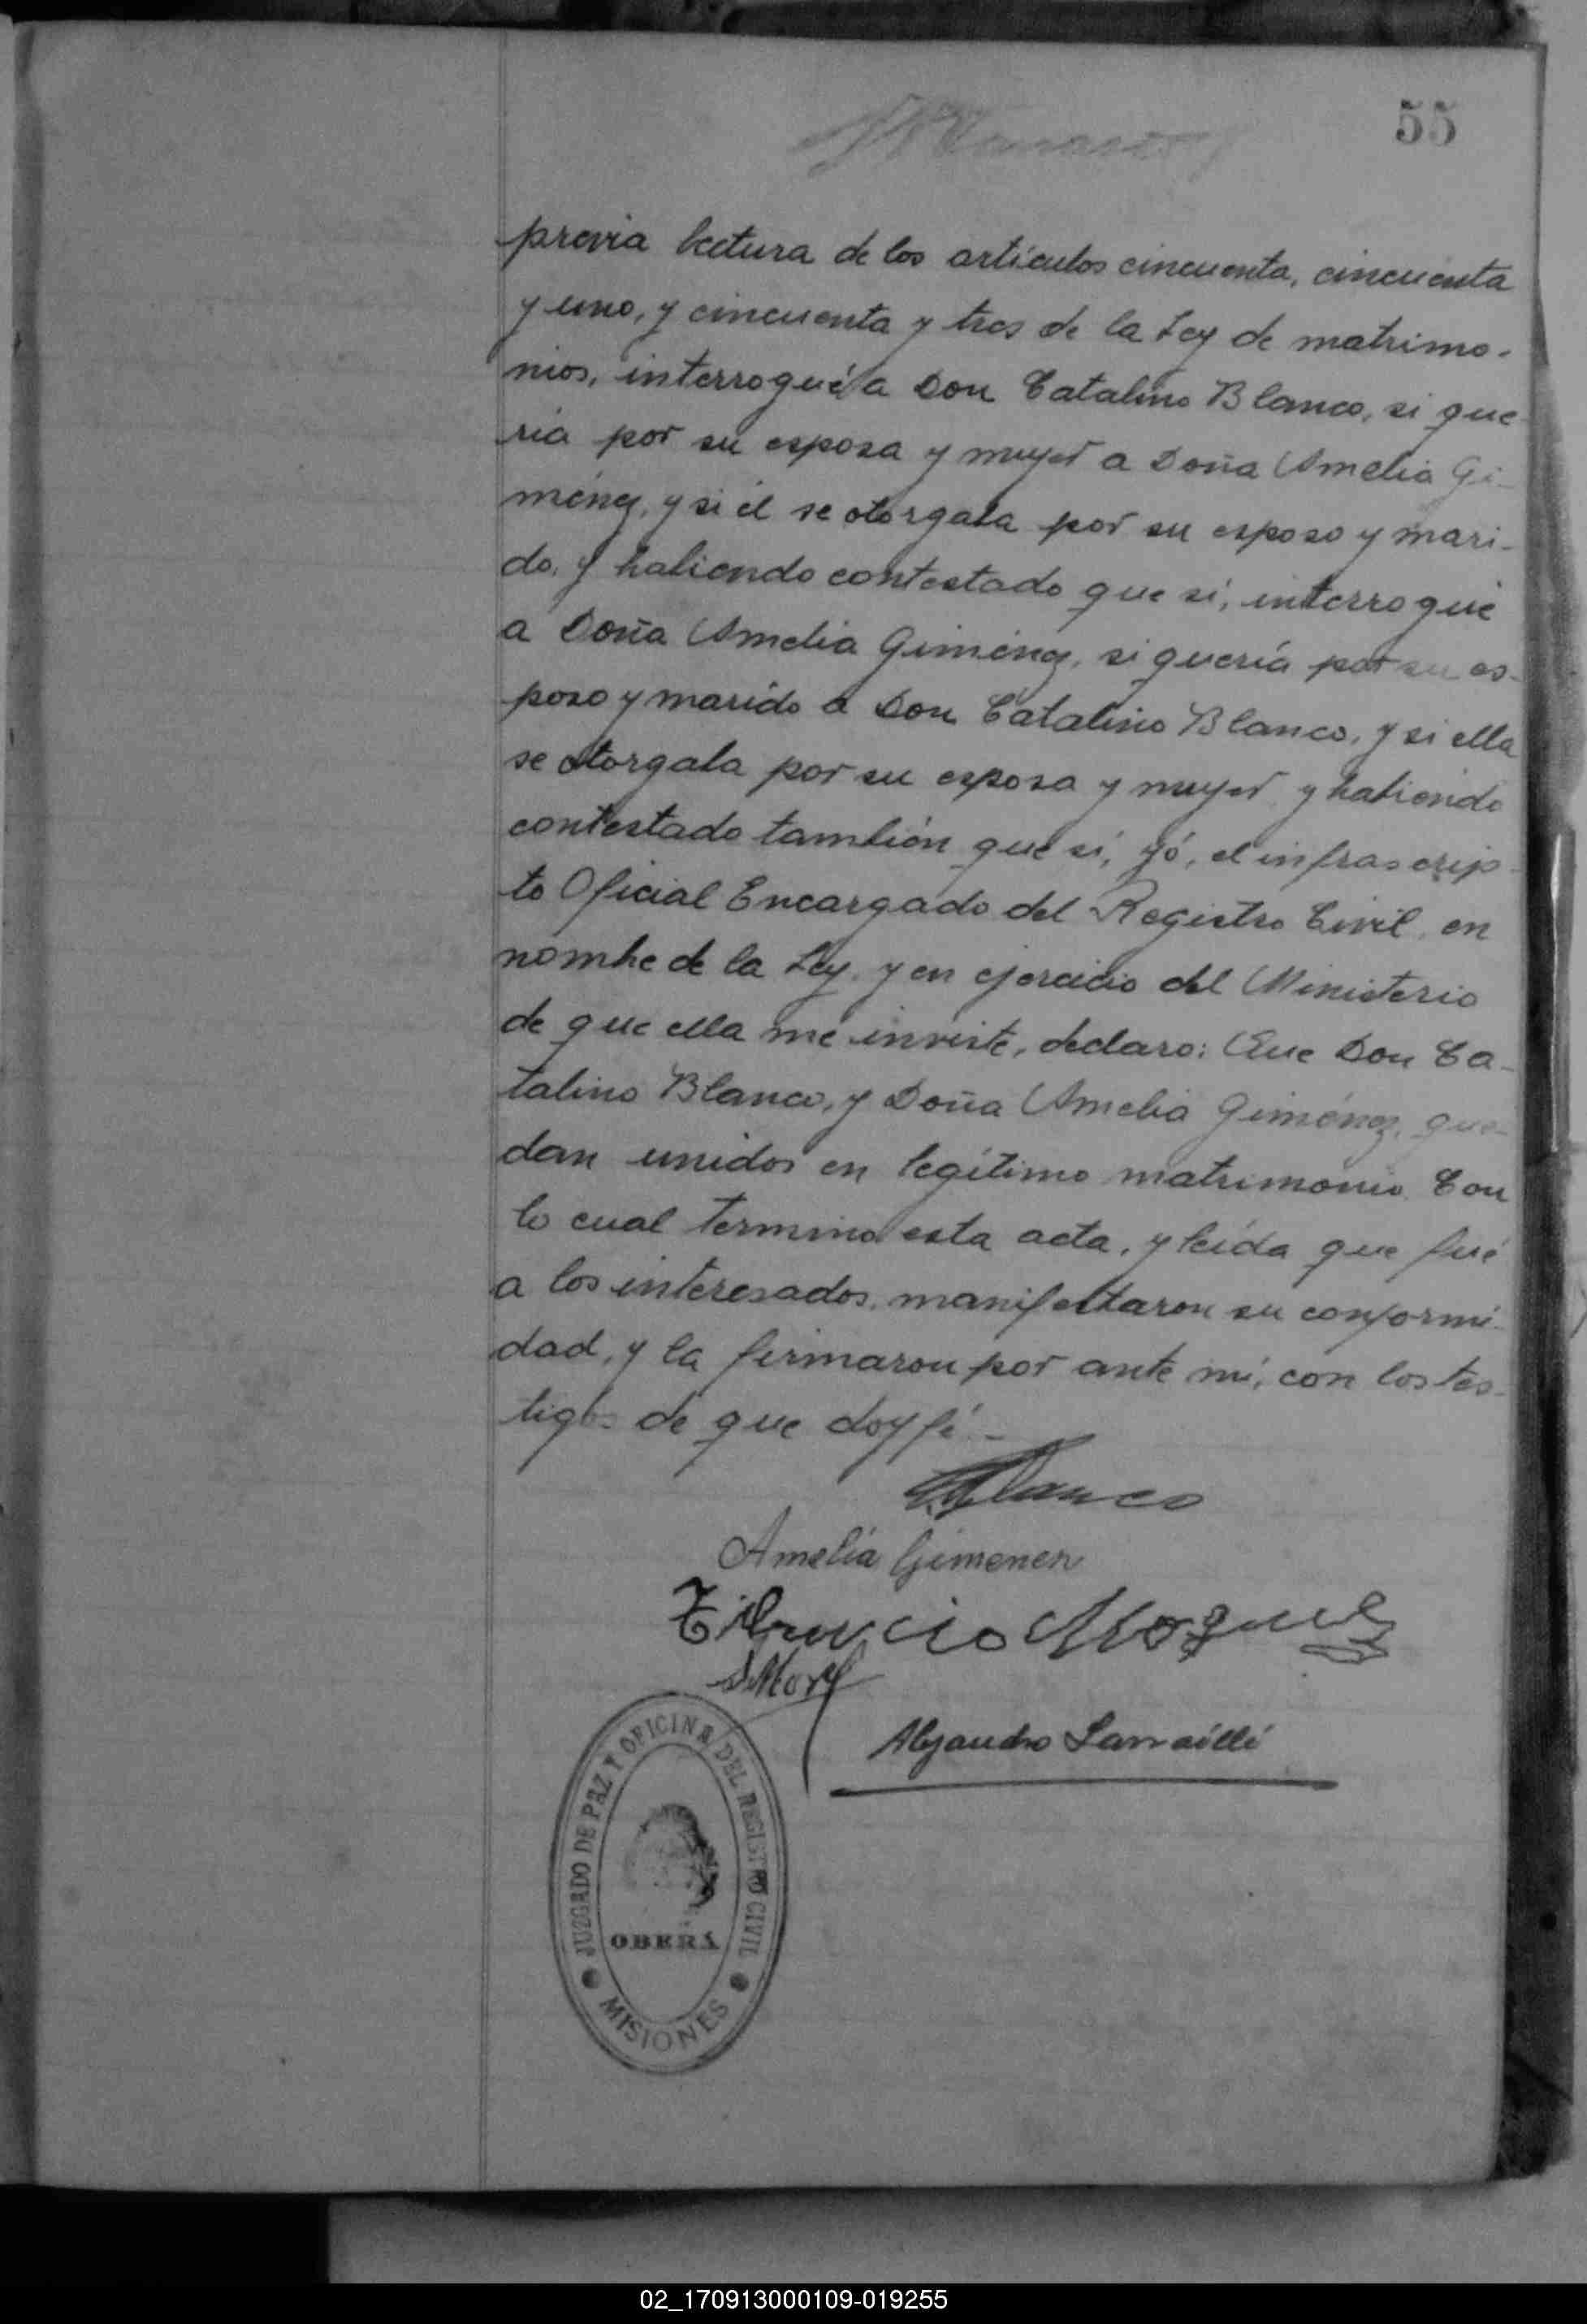 55
previa lectura de los artículos cincuenta, cincuenta
y uno, y cincuenta y tres de la Ley de matrimo-
nios, interrogué a Don Catalino Blanco, si que
ría por su esposa y mujer a Doña Amelia Gi-
ménez, y si él se otorgaba por su esposo y mari-
do, y habiendo contestado que sí, interrogué
a Doña Amelia Giménez, si quería por su es-
poso y marido a Don Catalino Blanco, y si ella
se otorgaba por su esposa y mujer y habiendo
contestado también que sí, yó, el infrascrip-
to Oficial Encargado del Registro Civil, en
nombre de la Ley, y en ejercicio del Ministerio
de que ella me inviste, declaro: Que Don Ca-
talino Blanco, y Doña Amelia Giménez, que-
dan unidos en legítimo matrimonio. Con
lo cual termino esta acta, y leída que fué
a los interesados, manifestaron su conformi-
dad, y la firmaron por ante mí, con los tes-
tigos de que doy fé.-
Blanco
Amelia Gimenez
Tiburcio
Alejandro
JUZGADO DE PAZ Y OFICINA DEL REGISTRO CIVIL
OBERÁ
MISIONES
02_170913000109-019255